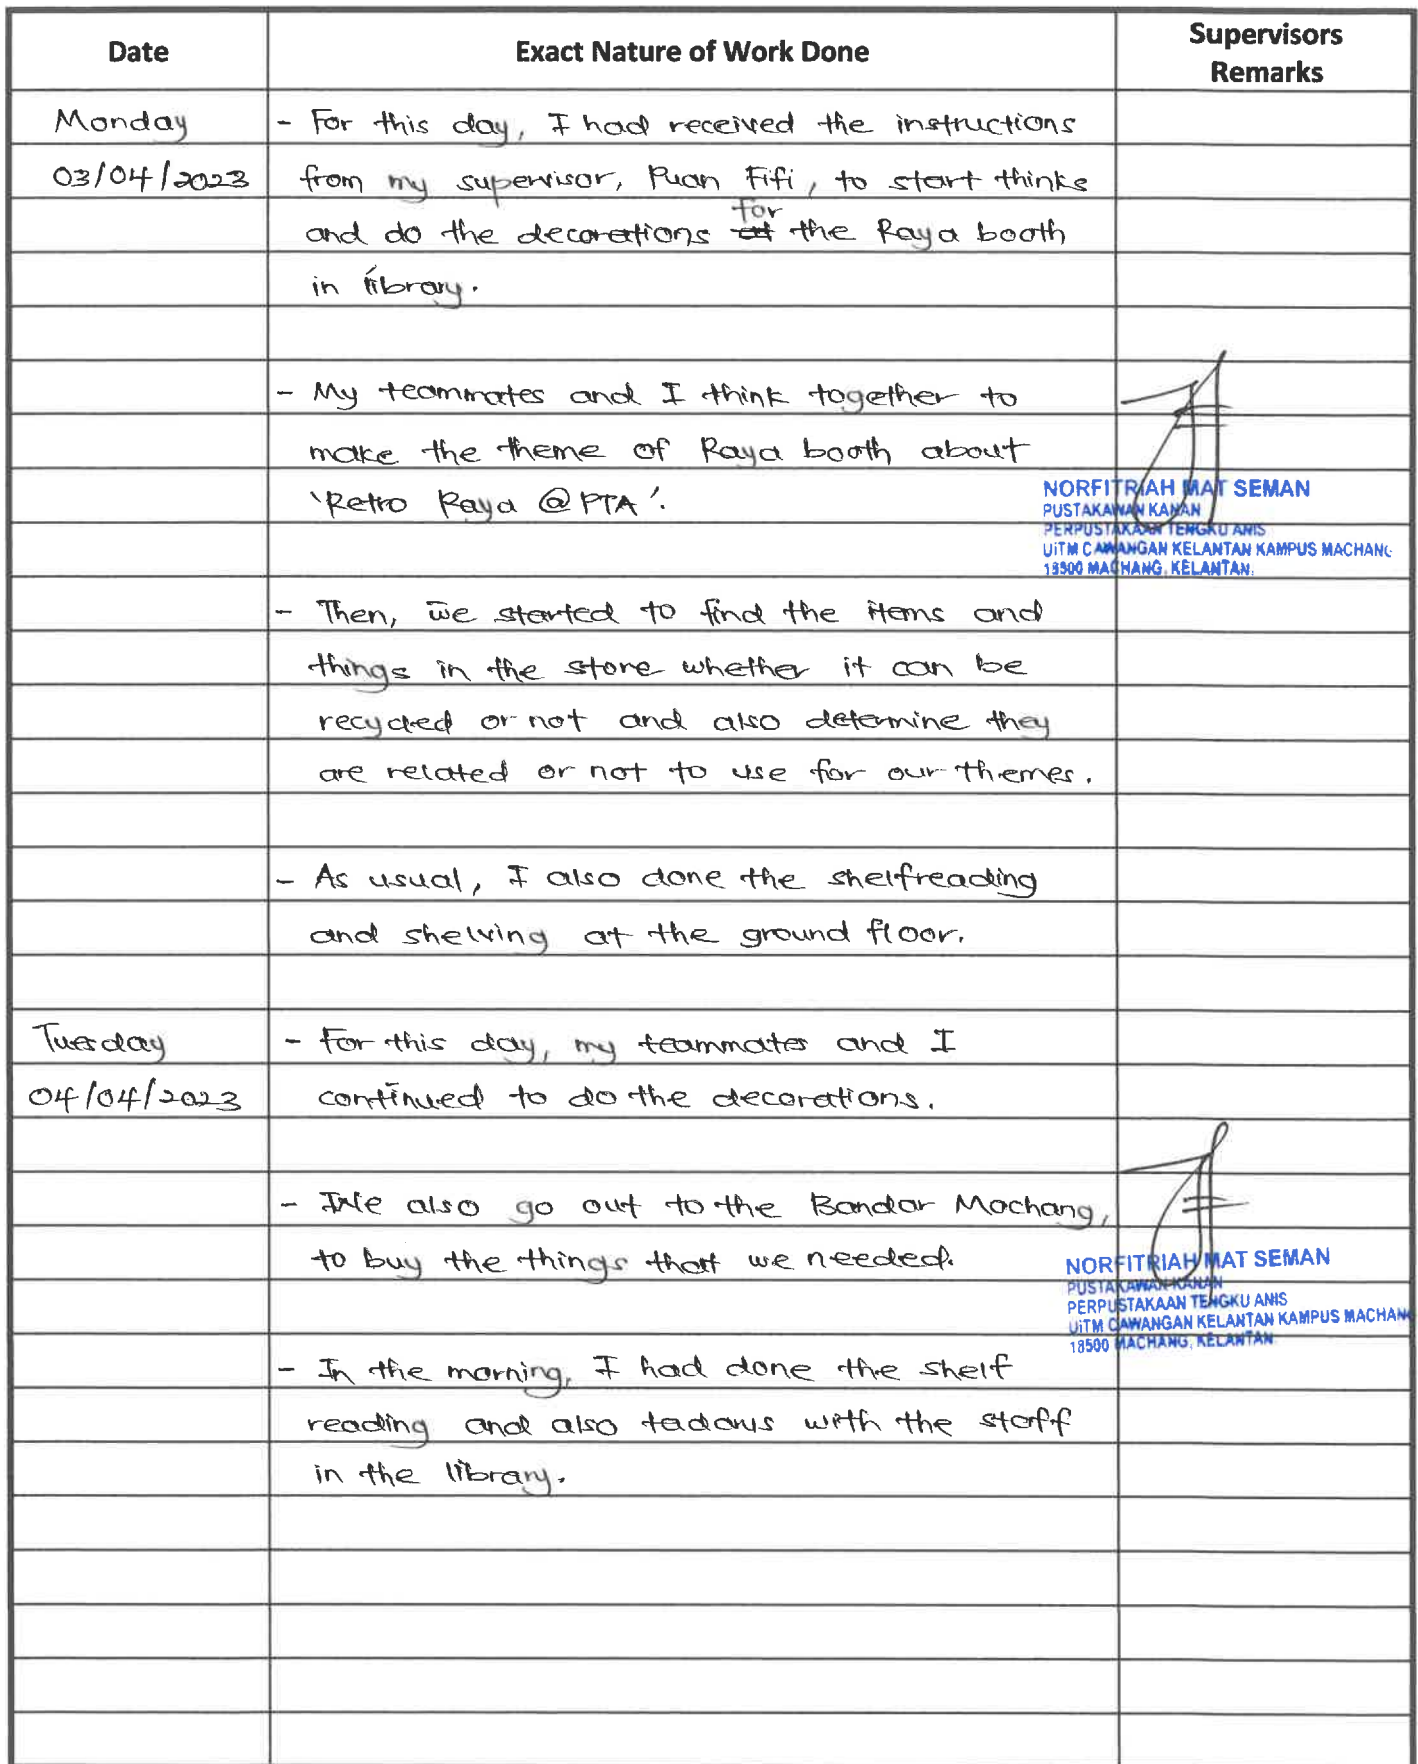 Date Exact Nature of Work Done Supervisors Remarks
Monday - For this day, I had received the instructions
03/04/2023 from my supervisor, Puan Fifi, to start thinks
for
and do the decorations the Raya booth
in library.
- My teammates and I think together to
make the theme of Raya booth about
'Retro Raya @ PTA'.
NORFITRIAH MAT SEMAN
PUSTAKAWAN KANAN
PERPUSTAKAAN TENGKU ANIS
UiTM CAWANGAN KELANTAN KAMPUS MACHANG
18500 MACHANG, KELANTAN.
- Then, we started to find the items and
things in the store whether it can be
recycled or not and also determine they
are related or not to use for our themes.
- As usual, I also done the shelfreading
and shelving at the ground floor.
Tuesday - For this day, my teammates and I
04/04/2023 continued to do the decorations.
- We also go out to the Bandar Machang,
to buy the things that we needed.
NORFITRIAH MAT SEMAN
PUSTAKAWAN KANAN
PERPUSTAKAAN TENGKU ANIS
UiTM CAWANGAN KELANTAN KAMPUS MACHANG
18500 MACHANG, KELANTAN
- In the morning, I had done the shelf
reading and also tadarus with the staff
in the library.